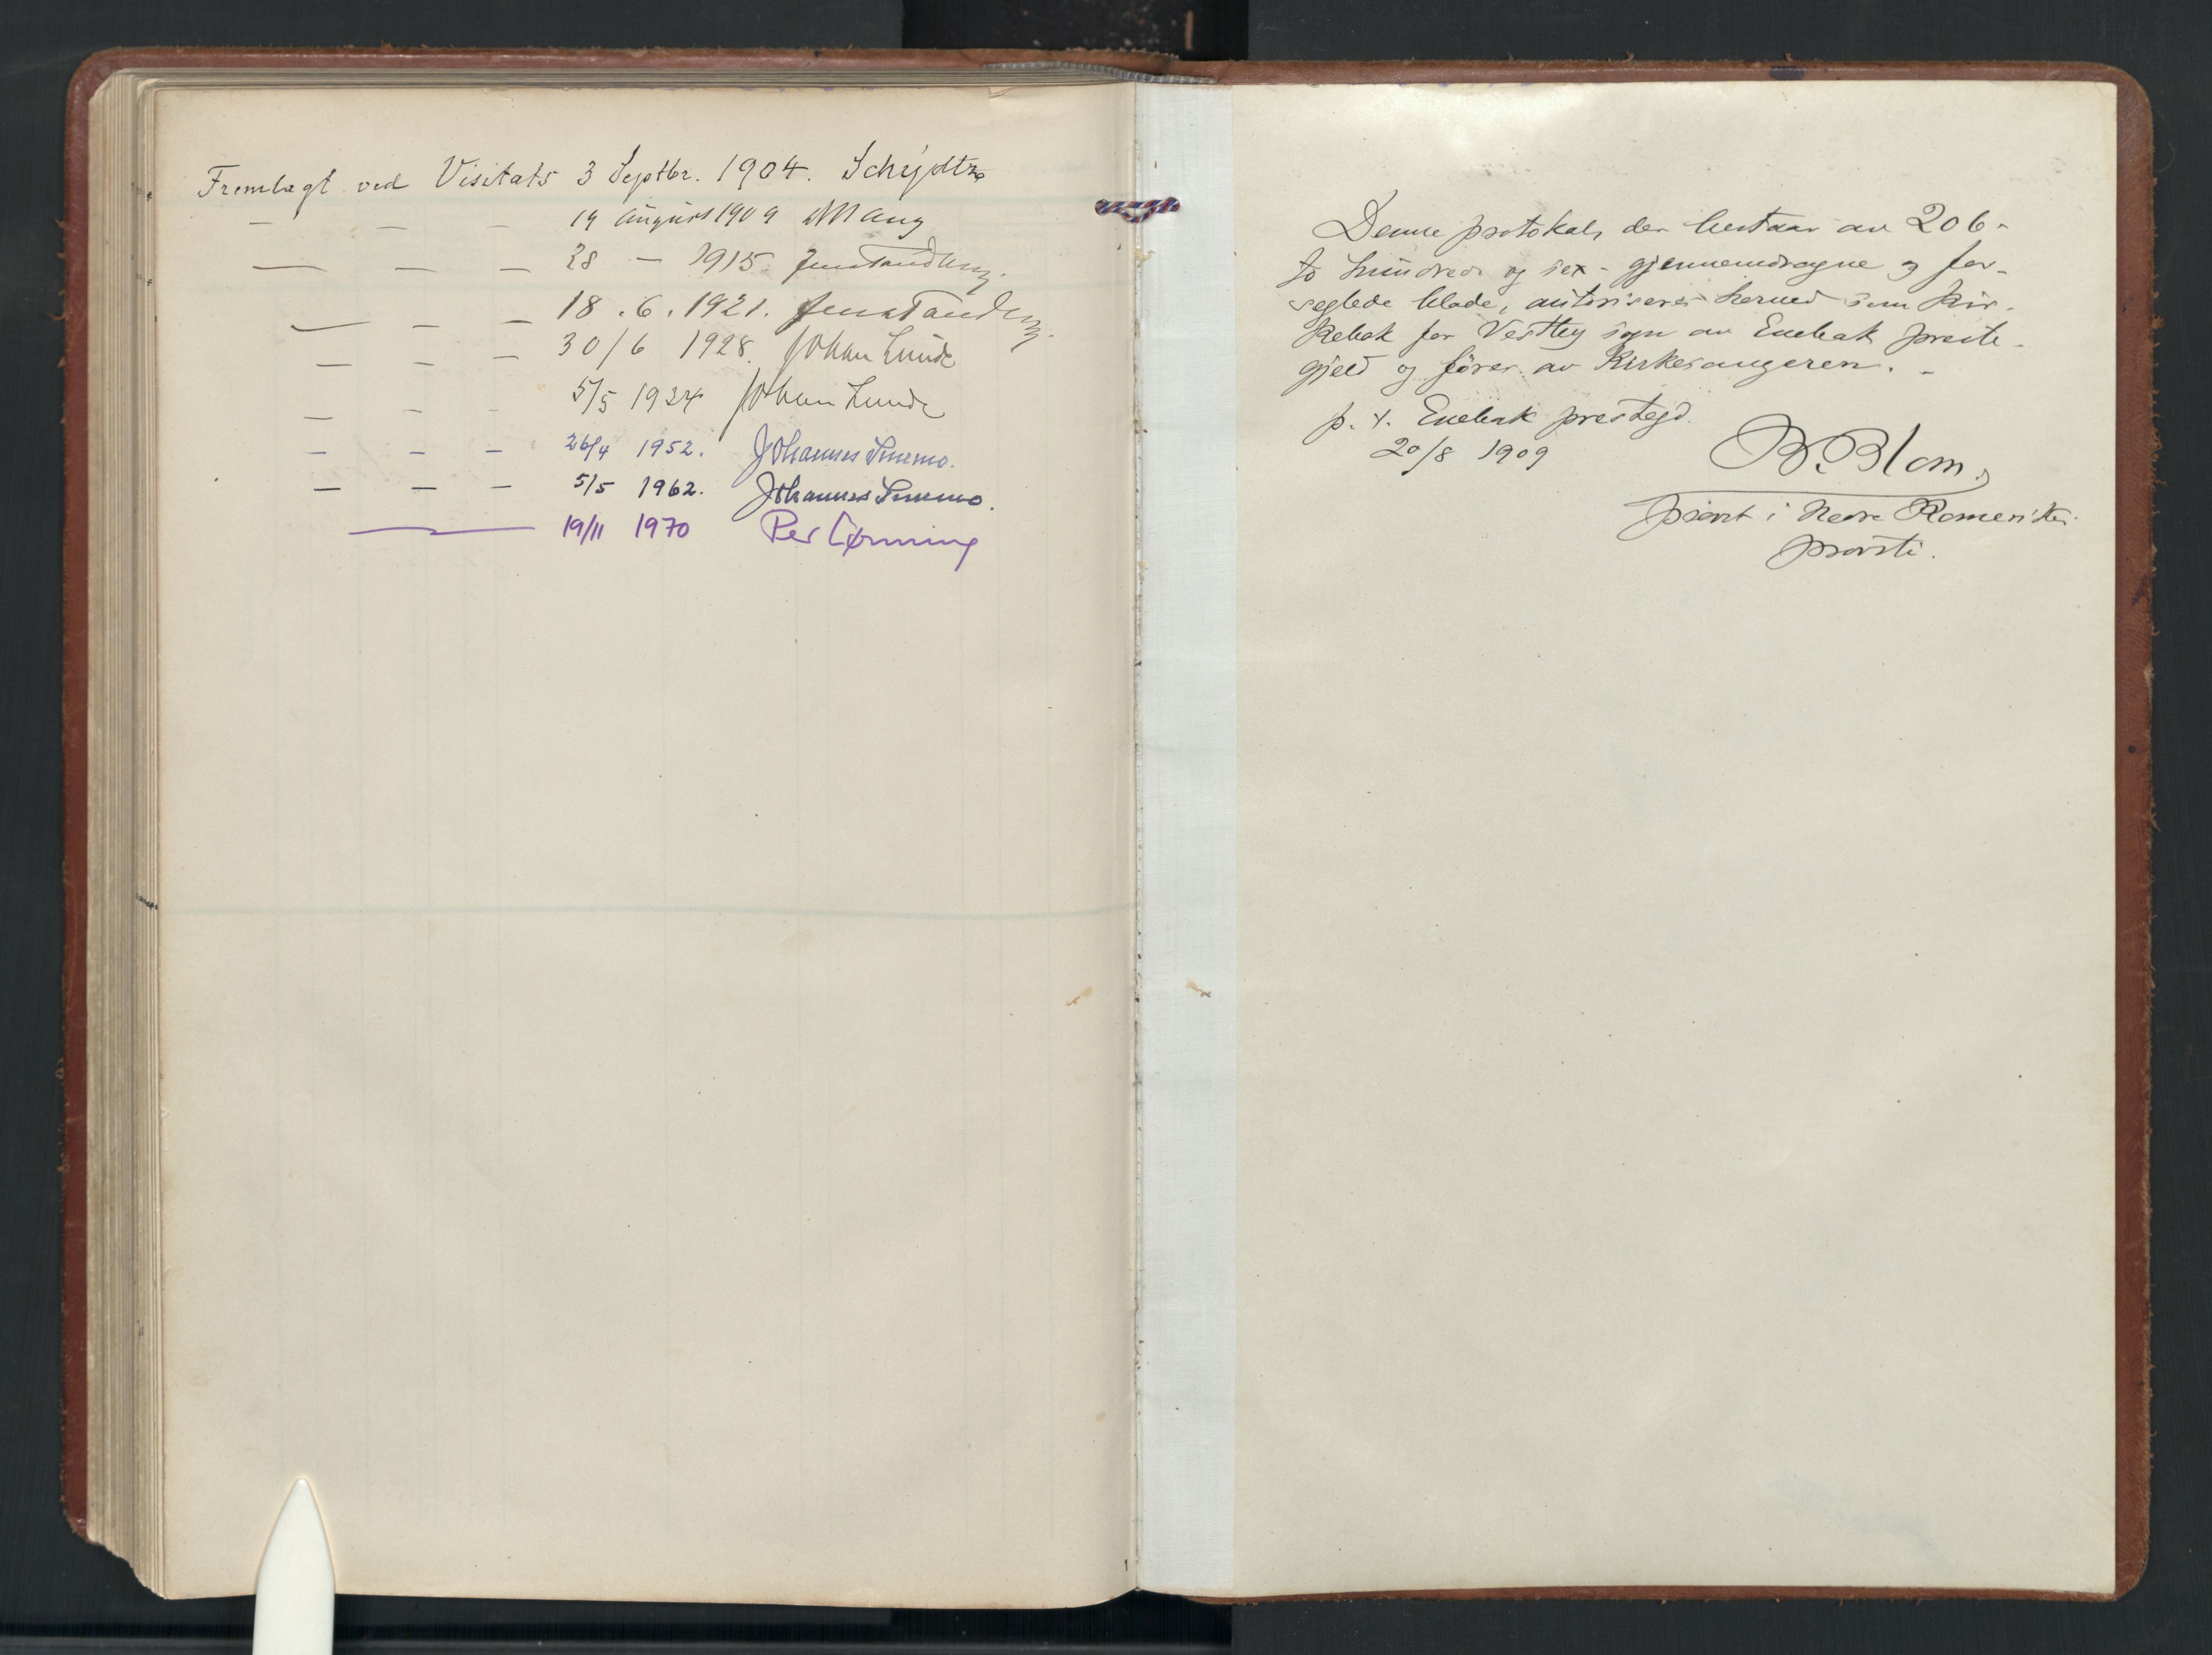 Fremlagt ved Visitats 3 Septbr. 1904. Schjøtz
— — — 19 august 1909 Maug
— — — 28 — 1915. Jens Tandberg.
— — — 18.6.1921. Jens Tandberg.
— — — 30/6 1928. Johan Lunde
— — — 5/5 1934 Johan Lunde
— — — 26/4 1952. Johannes Smemo.
— — — 5/5 1962. Johannes Smemo.
— 19/11 1970 Per Lønning
Denne protokol, der bestaar av 206 -
to hundrede og sex - gjennemdragne og for-
seglede blade, autoriseres herved som kir-
kebok for Vestby sogn av Enebak preste-
gjeld og føres av Kirkesangeren. -
p. t. Enebak prestegd.
20/8 1909
B. Blom.
provst i Nedre Romerikes
provsti.